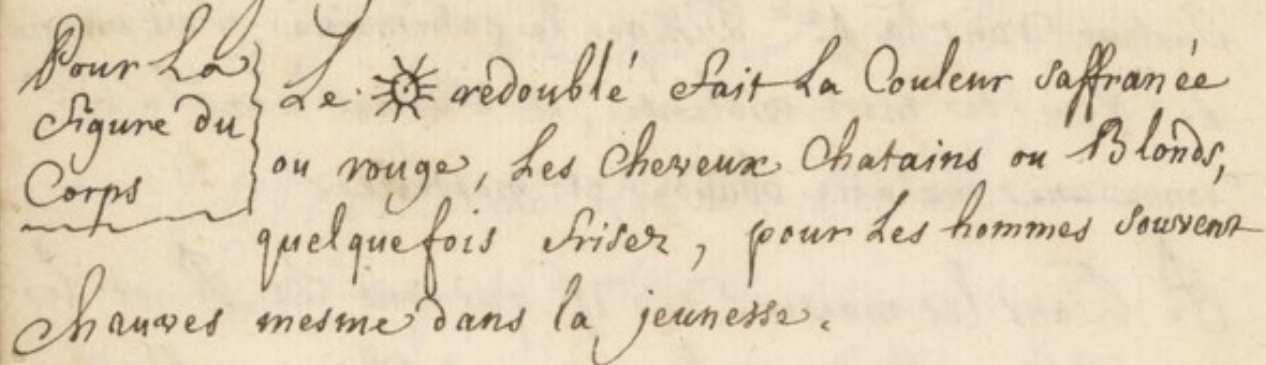 Pour La
figure du
Corps
Le ☼ redoublé fait La Couleur saffranée
ou rouge, Les Cheveux Chatains ou Blonds,
quelquefois frisez, pour Les hommes souvent
chauves mesme dans la jeunesse.